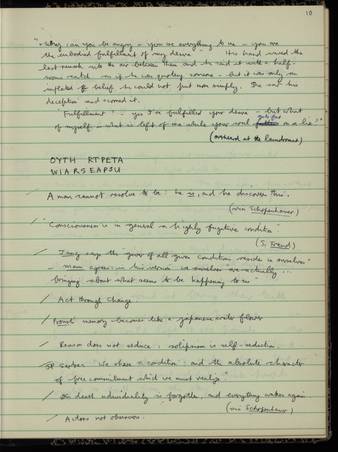 10
"Why can you be angry – you are everything to me – you are
the embodied fulfillment of my desire." His hand waved the
last remark into the air between them and he said it with a half-
as if he was quoting someone – but it was only an
inflated belief he could not put more simply. She saw his
deception and scorned it.
"Fulfillment! – yes I've fulfilled your desire – but what
of myself – what is left of me while your soul gets fat on a lie?"
(overheard at the laundromat)
OYTH RTPETA
WIARSEAPSU
A man cannot resolve to be: he is, and he discovers this.
(via Schopenhauer)
/ "Consciousness is in general a highly fugitive condition"
(S. Freud)
/ Jung says the giver of all given conditions resides in ourselves"
– ourselves are actually
bringing about what seems to be happening to us"
/ Act through Change
/ Proust: memory becomes like a japanese water flower
/ Reason does not seduce: solipsism is self-seduction.
/ Sartre: We share a condition and the absolute character
of free commitment which we must realize"
/ In death individuality is forgotten, and everything wakes again.
(via Schopenhauer)
/ Actors not observers.